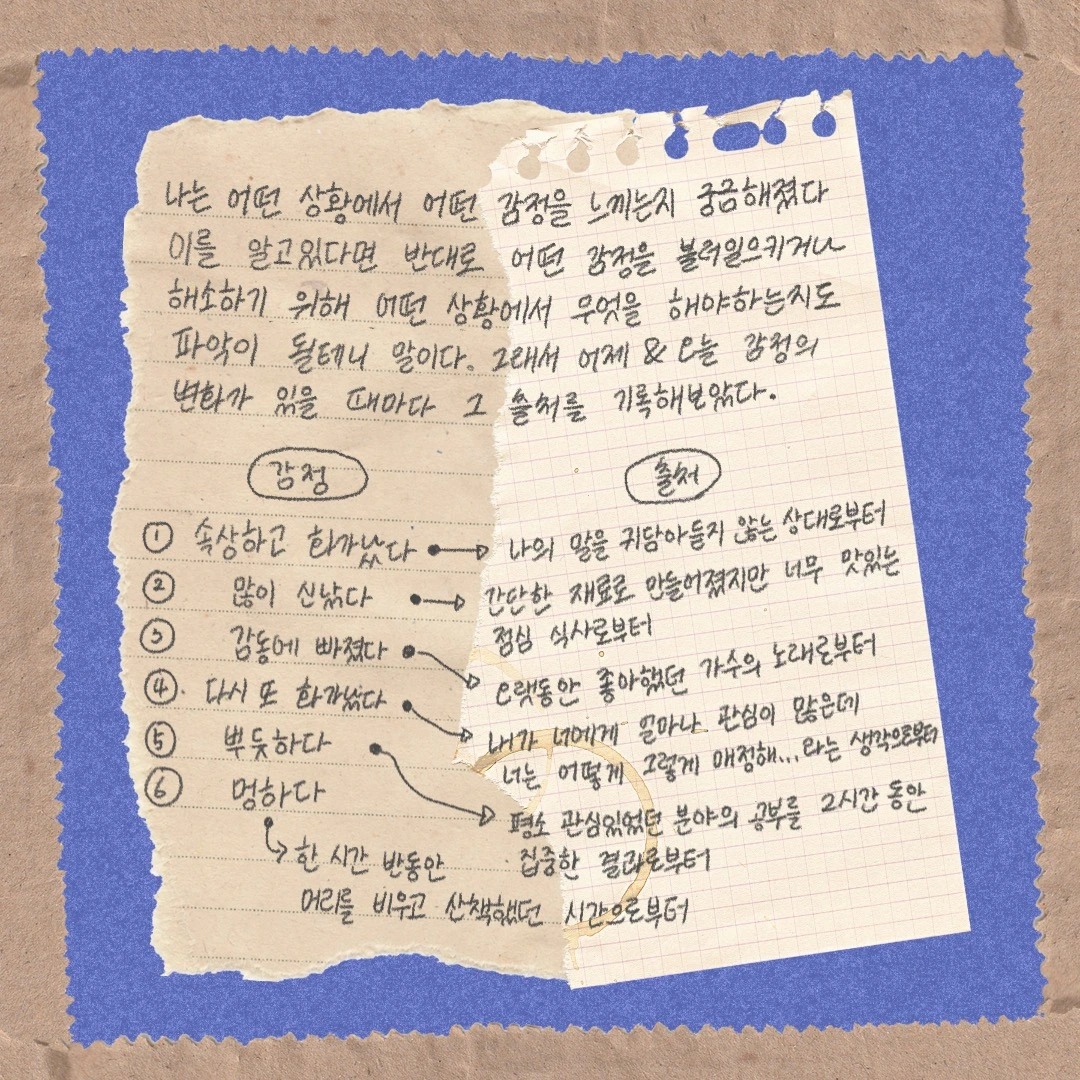 나는 어떤 상황에서 어떤 감정을 느끼는지 궁금해졌다
이를 알고있다면 반대로 어떤 감정을 불러일으키거나
해소하기 위해 어떤 상황에서 무엇을 해야하는지도
파악이 될테니 말이다. 그래서 어제 & 오늘 감정의
변화가 있을 때마다 그 출처를 기록해보았다.
감정
출처
① 속상하고 화가났다 → 나의 말을 귀담아듣지 않는 상대로부터
② 많이 신났다 → 간단한 재료로 만들어졌지만 너무 맛있는
점심 식사로부터
③ 감동에 빠졌다 → 오랫동안 좋아했던 가수의 노래로부터
④ 다시 또 화가났다 → 내가 너에게 얼마나 관심이 많은데
너는 어떻게 그렇게 매정해...라는 생각으로부터
⑤ 뿌듯하다 → 평소 관심있었던 분야의 공부를 2시간 동안
집중한 결과로부터
⑥ 멍하다
→ 한 시간 반동안
머리를 비우고 산책했던 시간으로부터